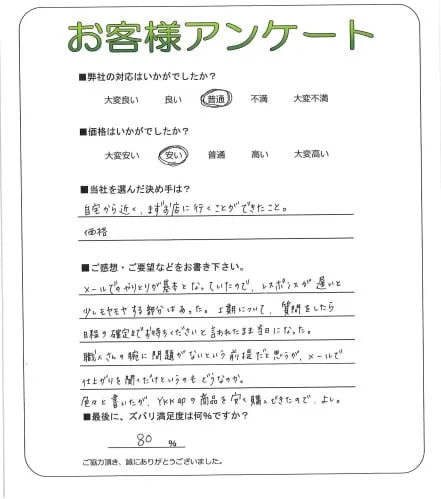 お客様アンケート
■弊社の対応はいかがでしたか?
大変良い 良い 普通 不満 大変不満
■価格はいかがでしたか?
大変安い 安い 普通 高い 大変高い
■当社を選んだ決め手は?
自宅から近く、まずお店に行くことができたこと。
価格
■ご感想・ご要望などをお書き下さい。
メールでのやりとりが基本となっていたので、レスポンスが遅いと
少しモヤモヤする部分はあった。工期について、質問をしたら
日程の確定までお待ちくださいと言われたまま当日になった。
職人さんの腕に問題がないという前提だと思うが、メールで
仕上がりを聞くだけというのもどうなのか。
色々と書いたが、YKKAPの商品を安く購入できたので、よし。
■最後に、ズバリ満足度は何%ですか?
80 %
ご協力頂き、誠にありがとうございました。